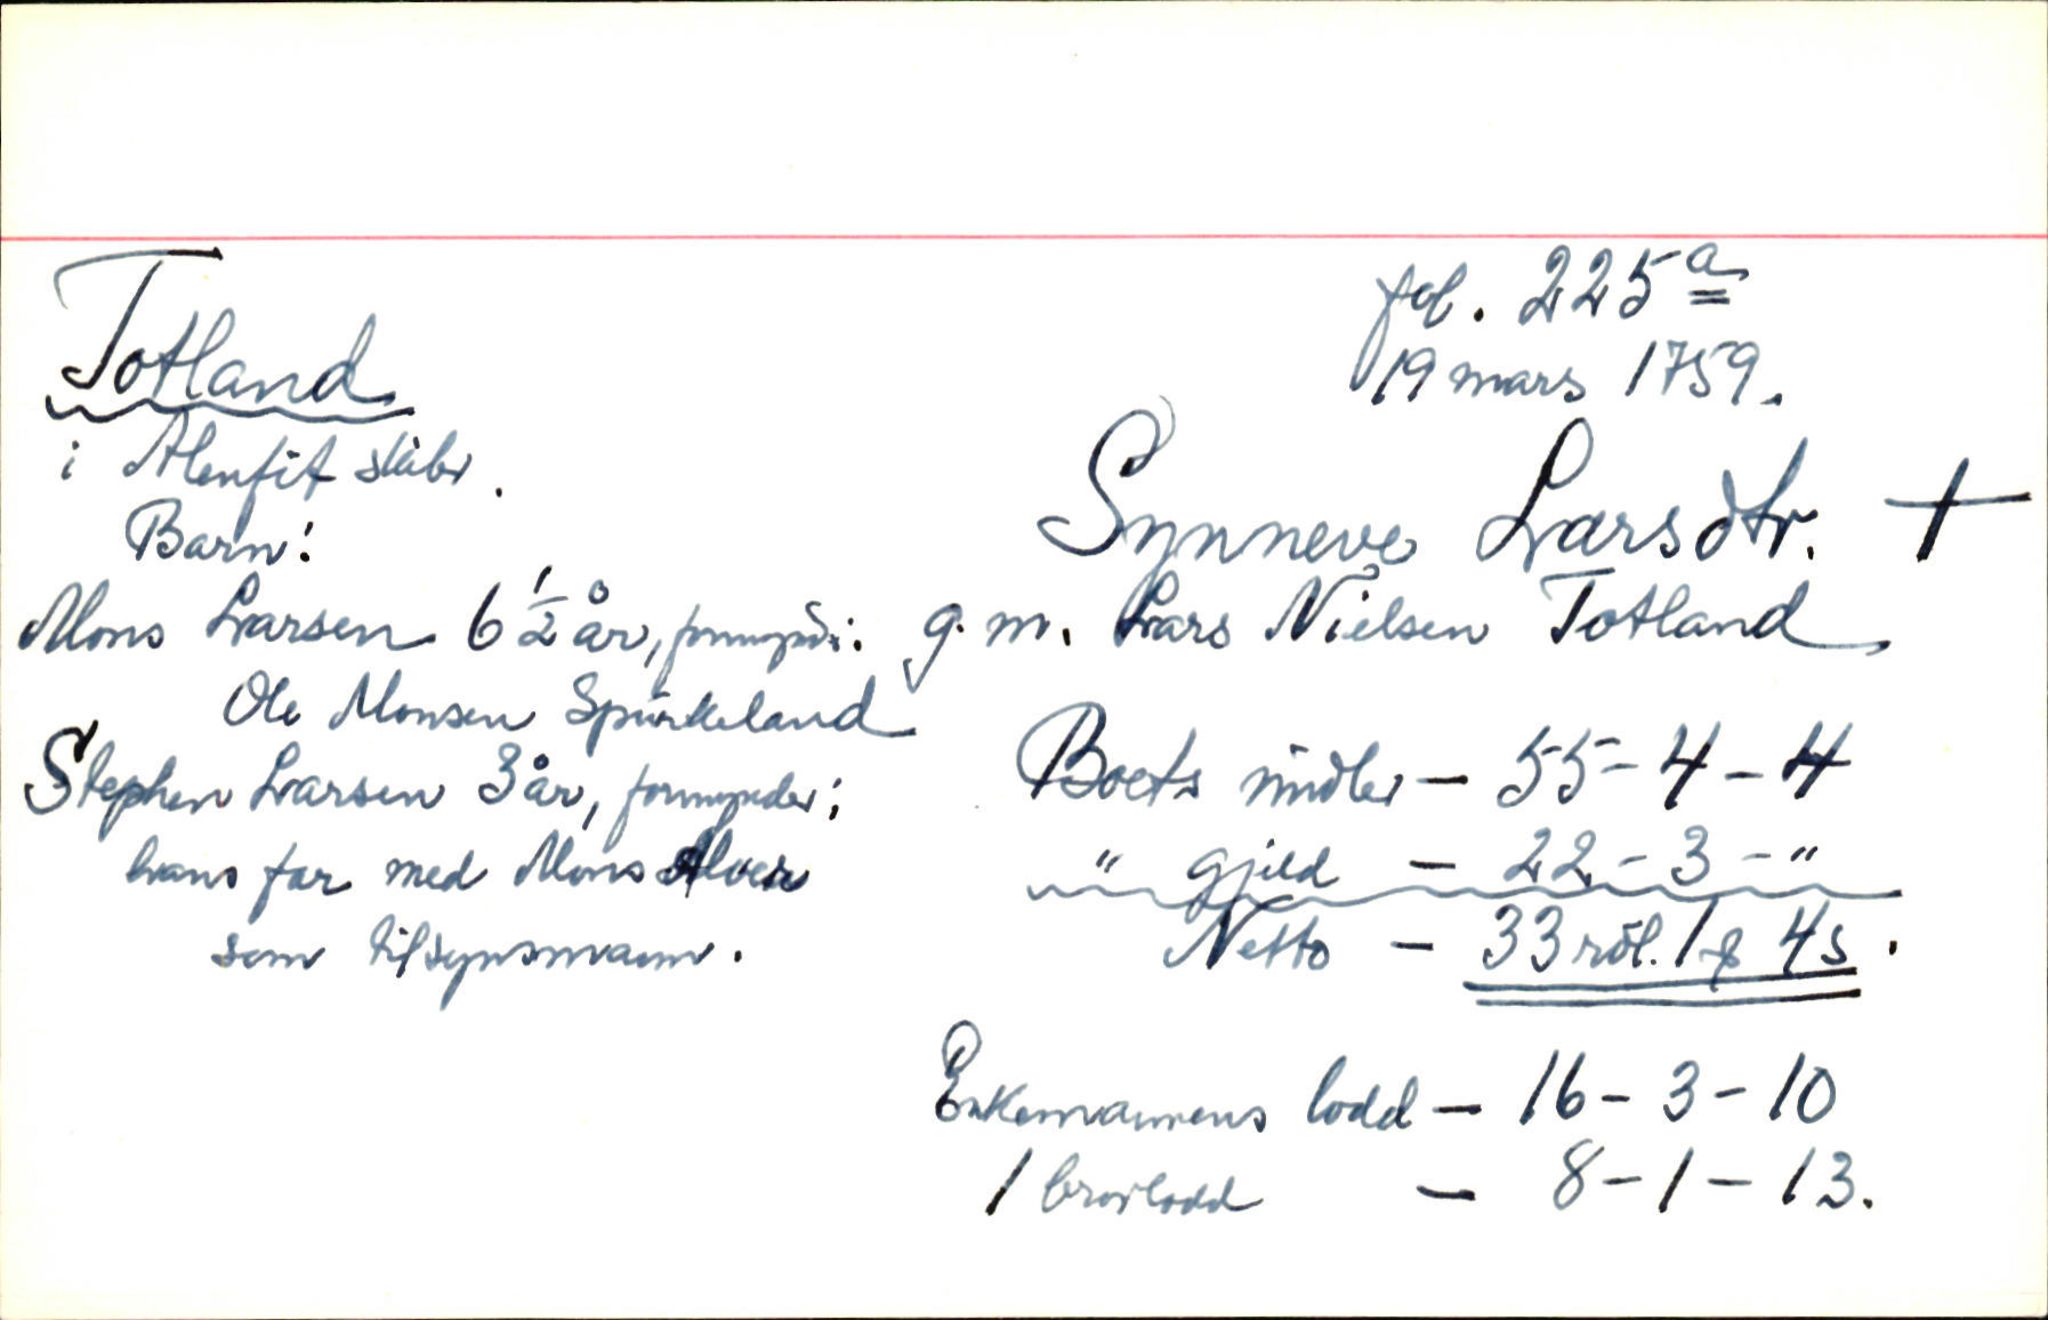 fol. 225 a
19 mars 1759.
Totland
i Alenfit skibr.
Synneve Larsdtr. +
g. m. Lars Nielsen Totland
Barn:
Mons Larsen 6 1/2 år, formynd.:
Ole Monsen Spurkeland
Stephen Larsen 3 år, formynder:
hans far med Mons Alver
som tilsynsmann.
Boets midler - 55 - 4 - 4
" gjeld - 22 - 3 - "
Netto - 33 rdl. 1 4 s.
Enkemannens lodd - 16 - 3 - 10
1 brorlodd - 8 - 1 - 13.